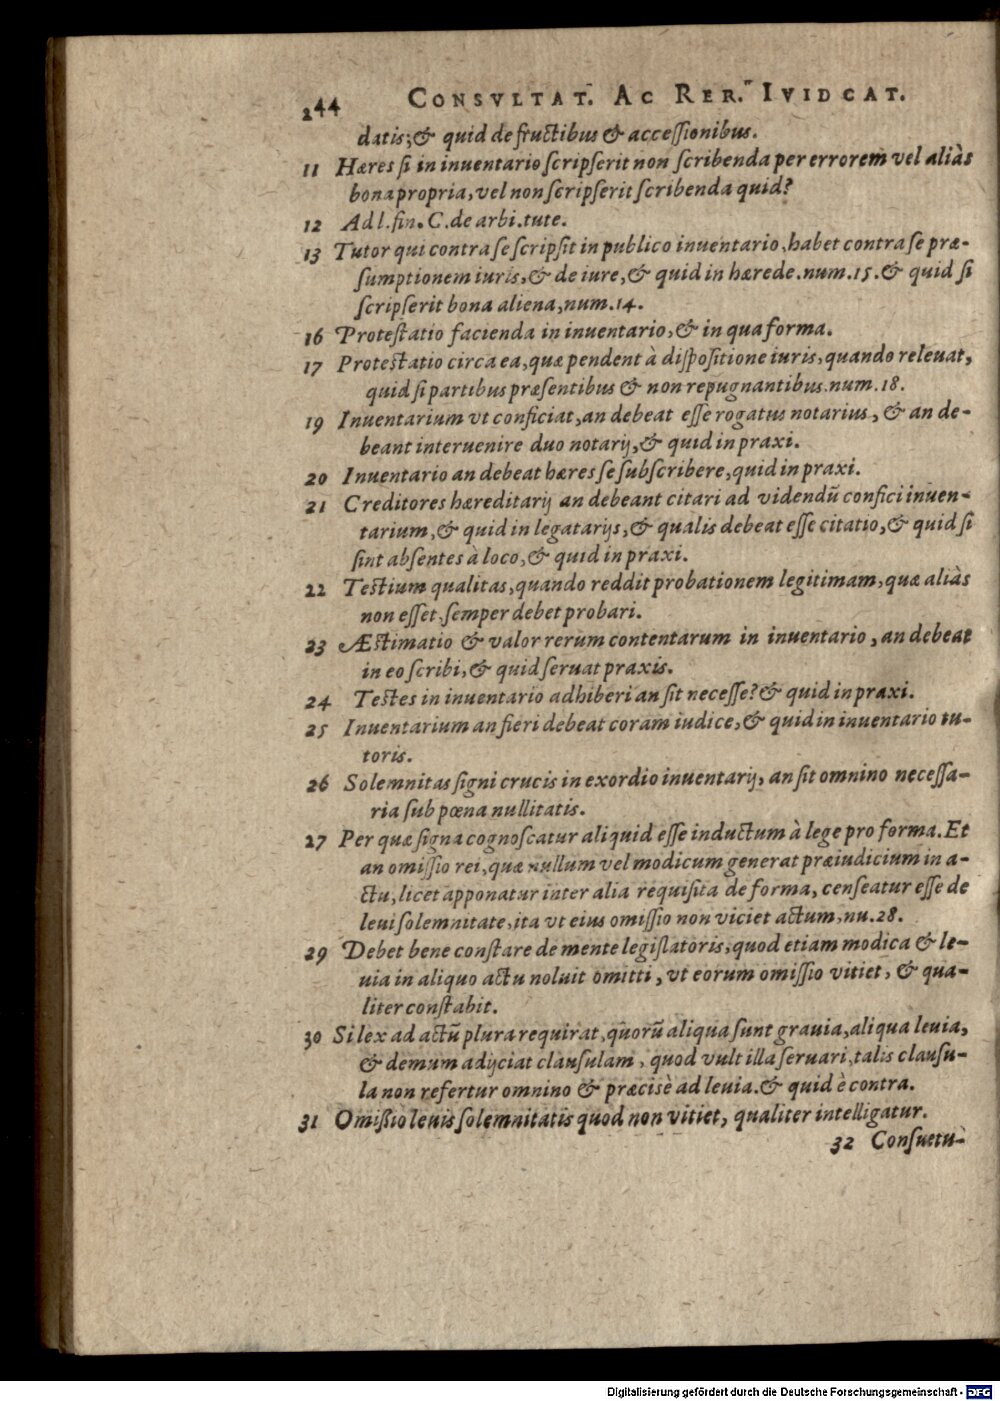 244 CONSVLTAT. AC RER. IVIDCAT.
datis; & quid de fructibus & accessionibus.
11 Hæres si in inuentario scripserit non scribenda per errorem vel aliàs
bona propria, vel non scripserit scribenda quid?
12 Ad l. fin. C. de arbi. tute.
13 Tutor qui contra se scripsit in publico inuentario, habet contra se præ-
sumptionem iuris, & de iure, & quid in hærede. num. 15. & quid si
scripserit bona aliena, num. 14.
16 Protestatio facienda in inuentario, & in qua forma.
17 Protestatio circa ea, quæ pendent à dispositione iuris, quando releuat,
quid si partibus præsentibus & non repugnantibus. num. 18.
19 Inuentarium vt conficiat, an debeat esse rogatus notarius, & an de-
beant interuenire duo notarij, & quid in praxi.
20 Inuentario an debeat hæres se subscribere, quid in praxi.
21 Creditores hæreditarij an debeant citari ad videndū confici inuen-
tarium, & quid in legatarijs, & qualis debeat esse citatio, & quid si
sint absentes à loco, & quid in praxi.
22 Testium qualitas, quando reddit probationem legitimam, quæ aliàs
non esset, semper debet probari.
23 Æstimatio & valor rerum contentarum in inuentario, an debeat
in eo scribi, & quid seruat praxis.
24 Testes in inuentario adhiberi an sit necesse? & quid in praxi.
25 Inuentarium an fieri debeat coram iudice, & quid in inuentario tu-
toris.
26 Solemnitas signi crucis in exordio inuentarij, an sit omnino necessa-
ria sub pœna nullitatis.
27 Per quæ signa cognoscatur aliquid esse inductum à lege pro forma. Et
an omissio rei, quæ nullum vel modicum generat præiudicium in a-
ctu, licet apponatur inter alia requisita de forma, censeatur esse de
leui solemnitate, ita vt eius omissio non viciet actum, nu. 28.
29 Debet bene constare de mente legislatoris, quod etiam modica & le-
uia in aliquo actu noluit omitti, vt eorum omissio vitiet, & qua-
liter constabit.
30 Si lex ad actū plura requirat, quorū aliqua sunt grauia, aliqua leuia,
& demum adijciat clausulam, quod vult illa seruari, talis clausu-
la non refertur omnino & præcisè ad leuia. & quid è contra.
31 Omissio leuis solemnitatis quod non vitiet, qualiter intelligatur.
32 Consuetu-
Digitalisierung gefördert durch die Deutsche Forschungsgemeinschaft - DFG